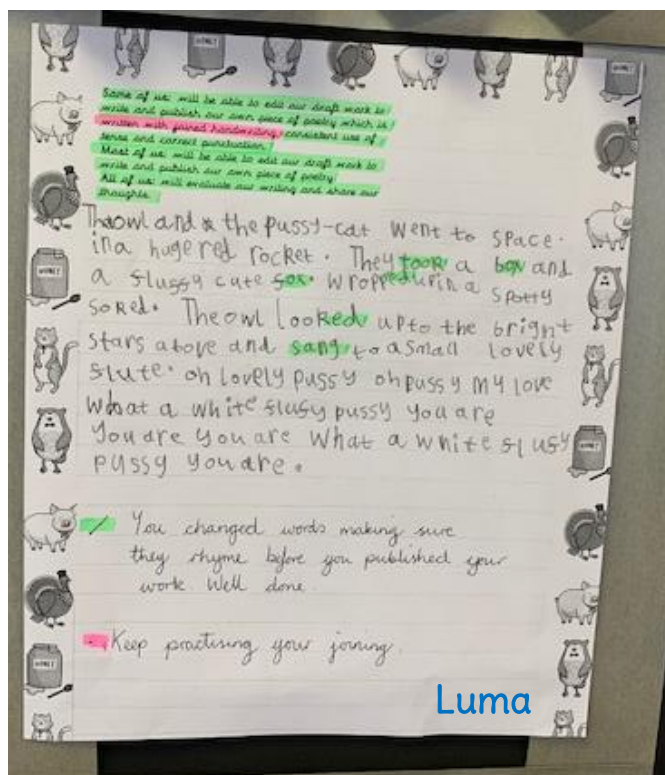 Some of us will be able to edit our draft work to
write and publish our own piece of poetry which is
written with joined handwriting, consistent use of
tense and correct punctuation.
Most of us will be able to edit our draft work to
write and publish our own piece of poetry.
All of us will evaluate our writing and share our
thoughts.
The owl and the pussy-cat went to space.
in a huge red rocket. They took a box and
a slussy cute sox. wropped up in a spotty
sored. The owl looked up to the bright
stars above and sang to a small lovely
slute. oh lovely pussy oh pussy my love
what a white slusy pussy you are
you are you are what a white slusy
pussy you are.
You changed words making sure
they rhyme before you published your
work. Well done.
Keep practising your joining.
Luma
HONEY
HONEY
HONEY
HONEY
HONEY
HONEY